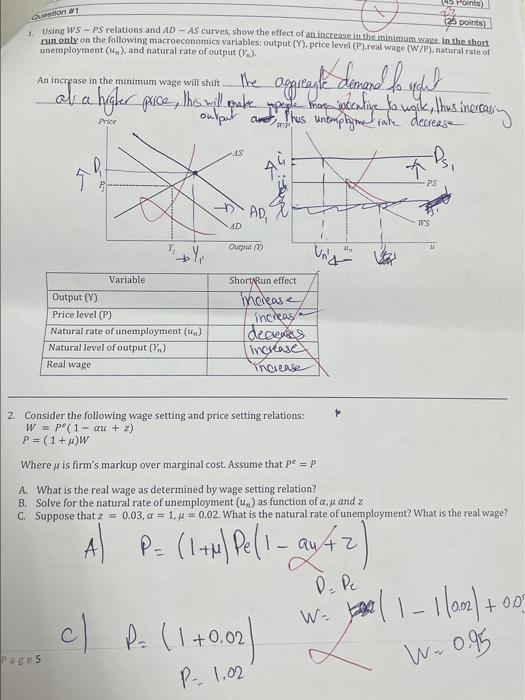 (45 Points)
Question #1
(25 points)
1. Using WS – PS relations and AD – AS curves, show the effect of an increase in the minimum wage in the short
run only on the following macroeconomics variables: output (Y), price level (P),real wage (W/P), natural rate of
unemployment (uₙ), and natural rate of output (Yₙ).
An increase in the minimum wage will shift... The aggreagte demand to right
at a higher price, this will make people more incentive to work, thus increasing
output and, thus unemployment rate decrease
Price
W/P
AS
P₁
P
AD₁
AD
Y
Y₁
Output (Y)
PS₁
PS
WS
uₙ
Un'
u
Variable
Short Run effect
Output (Y)
increase
Price level (P)
increas
Natural rate of unemployment (uₙ)
decreases
Natural level of output (Yₙ)
increase
Real wage
increase
2. Consider the following wage setting and price setting relations:
W = Pᵉ(1 − αu + z)
P = (1 + μ)W
Where μ is firm's markup over marginal cost. Assume that Pᵉ = P
A. What is the real wage as determined by wage setting relation?
B. Solve for the natural rate of unemployment (uₙ) as function of α, μ and z
C. Suppose that z = 0.03, α = 1, μ = 0.02. What is the natural rate of unemployment? What is the real wage?
A) P= (1+μ) Pe (1 - αu + z)
P = Pe
W= (1 - 1(0.02) + 0.0
C) P= (1+0.02)
W= 0.95
P= 1.02
Page 5